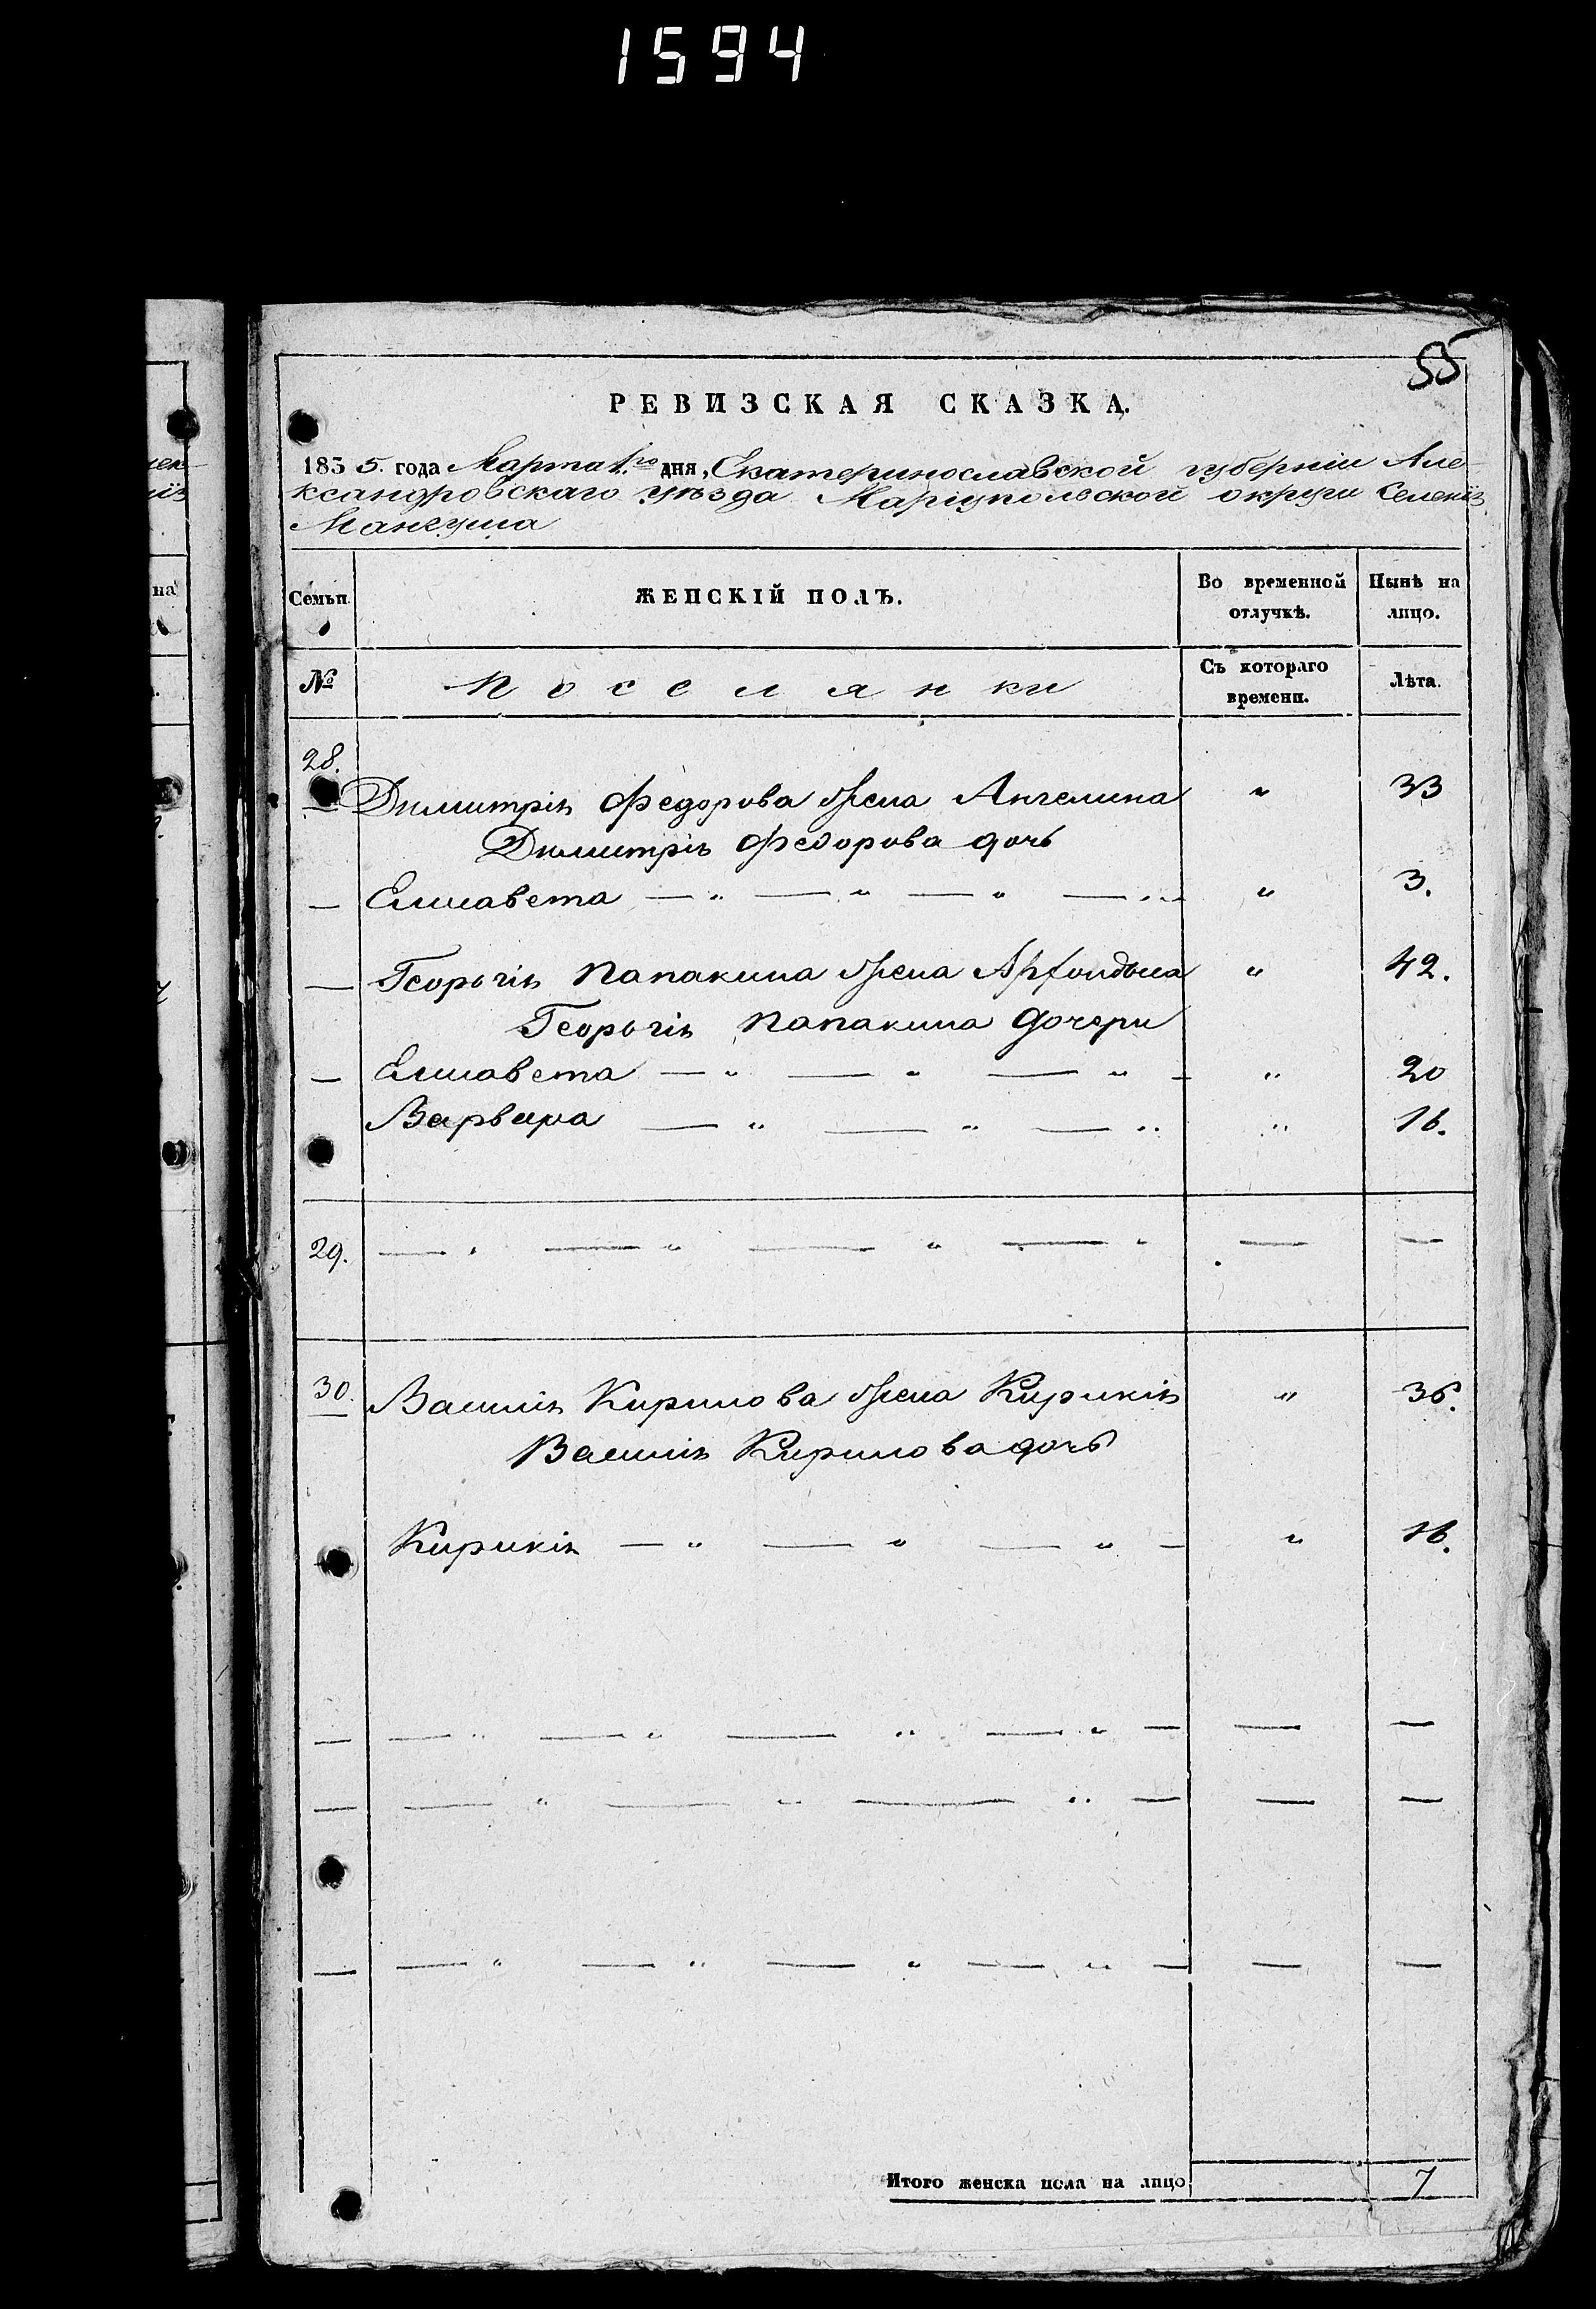 1594
55
РЕВИЗСКАЯ СКАЗКА.
1835. года Марта 1го дня, Екатеринославской губерніи Але-
ксандровскаго уѣзда Маріупольской округи Селенія
Мангуша
Семьи. ЖЕНСКІЙ ПОЛЪ. Во временной отлучкѣ. Нынѣ на лицо.
№ Поселянки Съ котораго времени. Лѣта.
28.
— Димитрія Федорова жена Ангелина " 33
Димитрія Федорова дочь
— Елисавета — " — " — " — " " 3.
— Георгія Папакица жена " 42.
Георгія Папакица дочери
— Елисавета — " — " — " — " 20
Варвара — " — " — " " 16.
29. — " — " — " — " — —
30. Василія Кирилова жена Кирикія " 36.
Василія Кирилова дочь
Кирикія — " — " — " — " 16.
— — " — " — " — " — — —
— — " — " — " — — —
— — " — " — " — " — — —
Итого женска пола на лицо 7